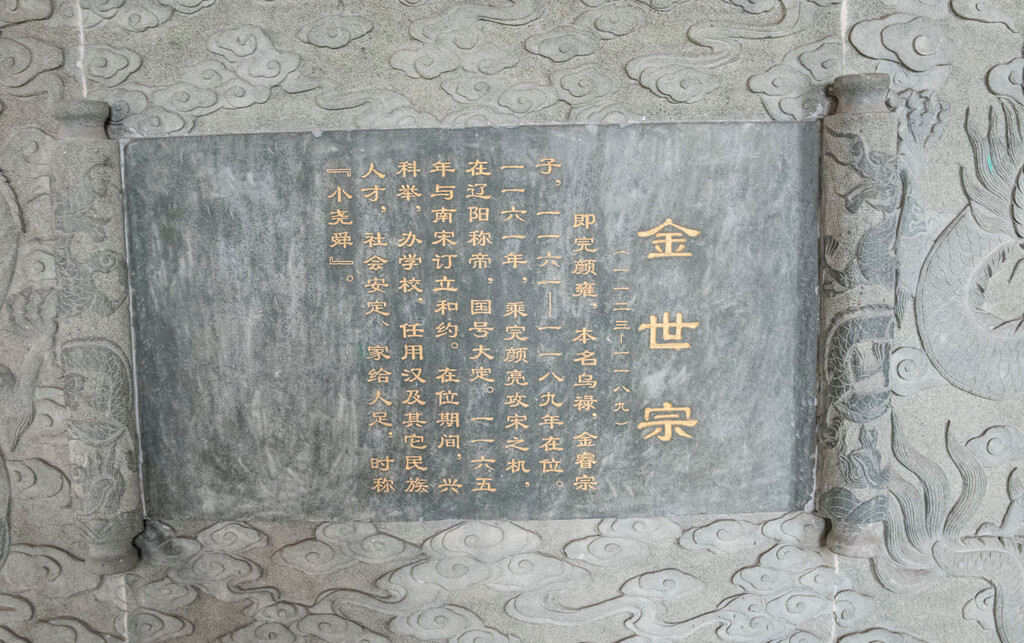 金世宗
（一一二三—一一八九）
即完颜雍，本名乌禄，金睿宗
子，一一六一—一一八九年在位。
一一六一年，乘完颜亮攻宋之机，
在辽阳称帝，国号大定。一一六五
年与南宋订立和约。在位期间，兴
科举，办学校，任用汉及其它民族
人才，社会安定、家给人足，时称
『小尧舜』。